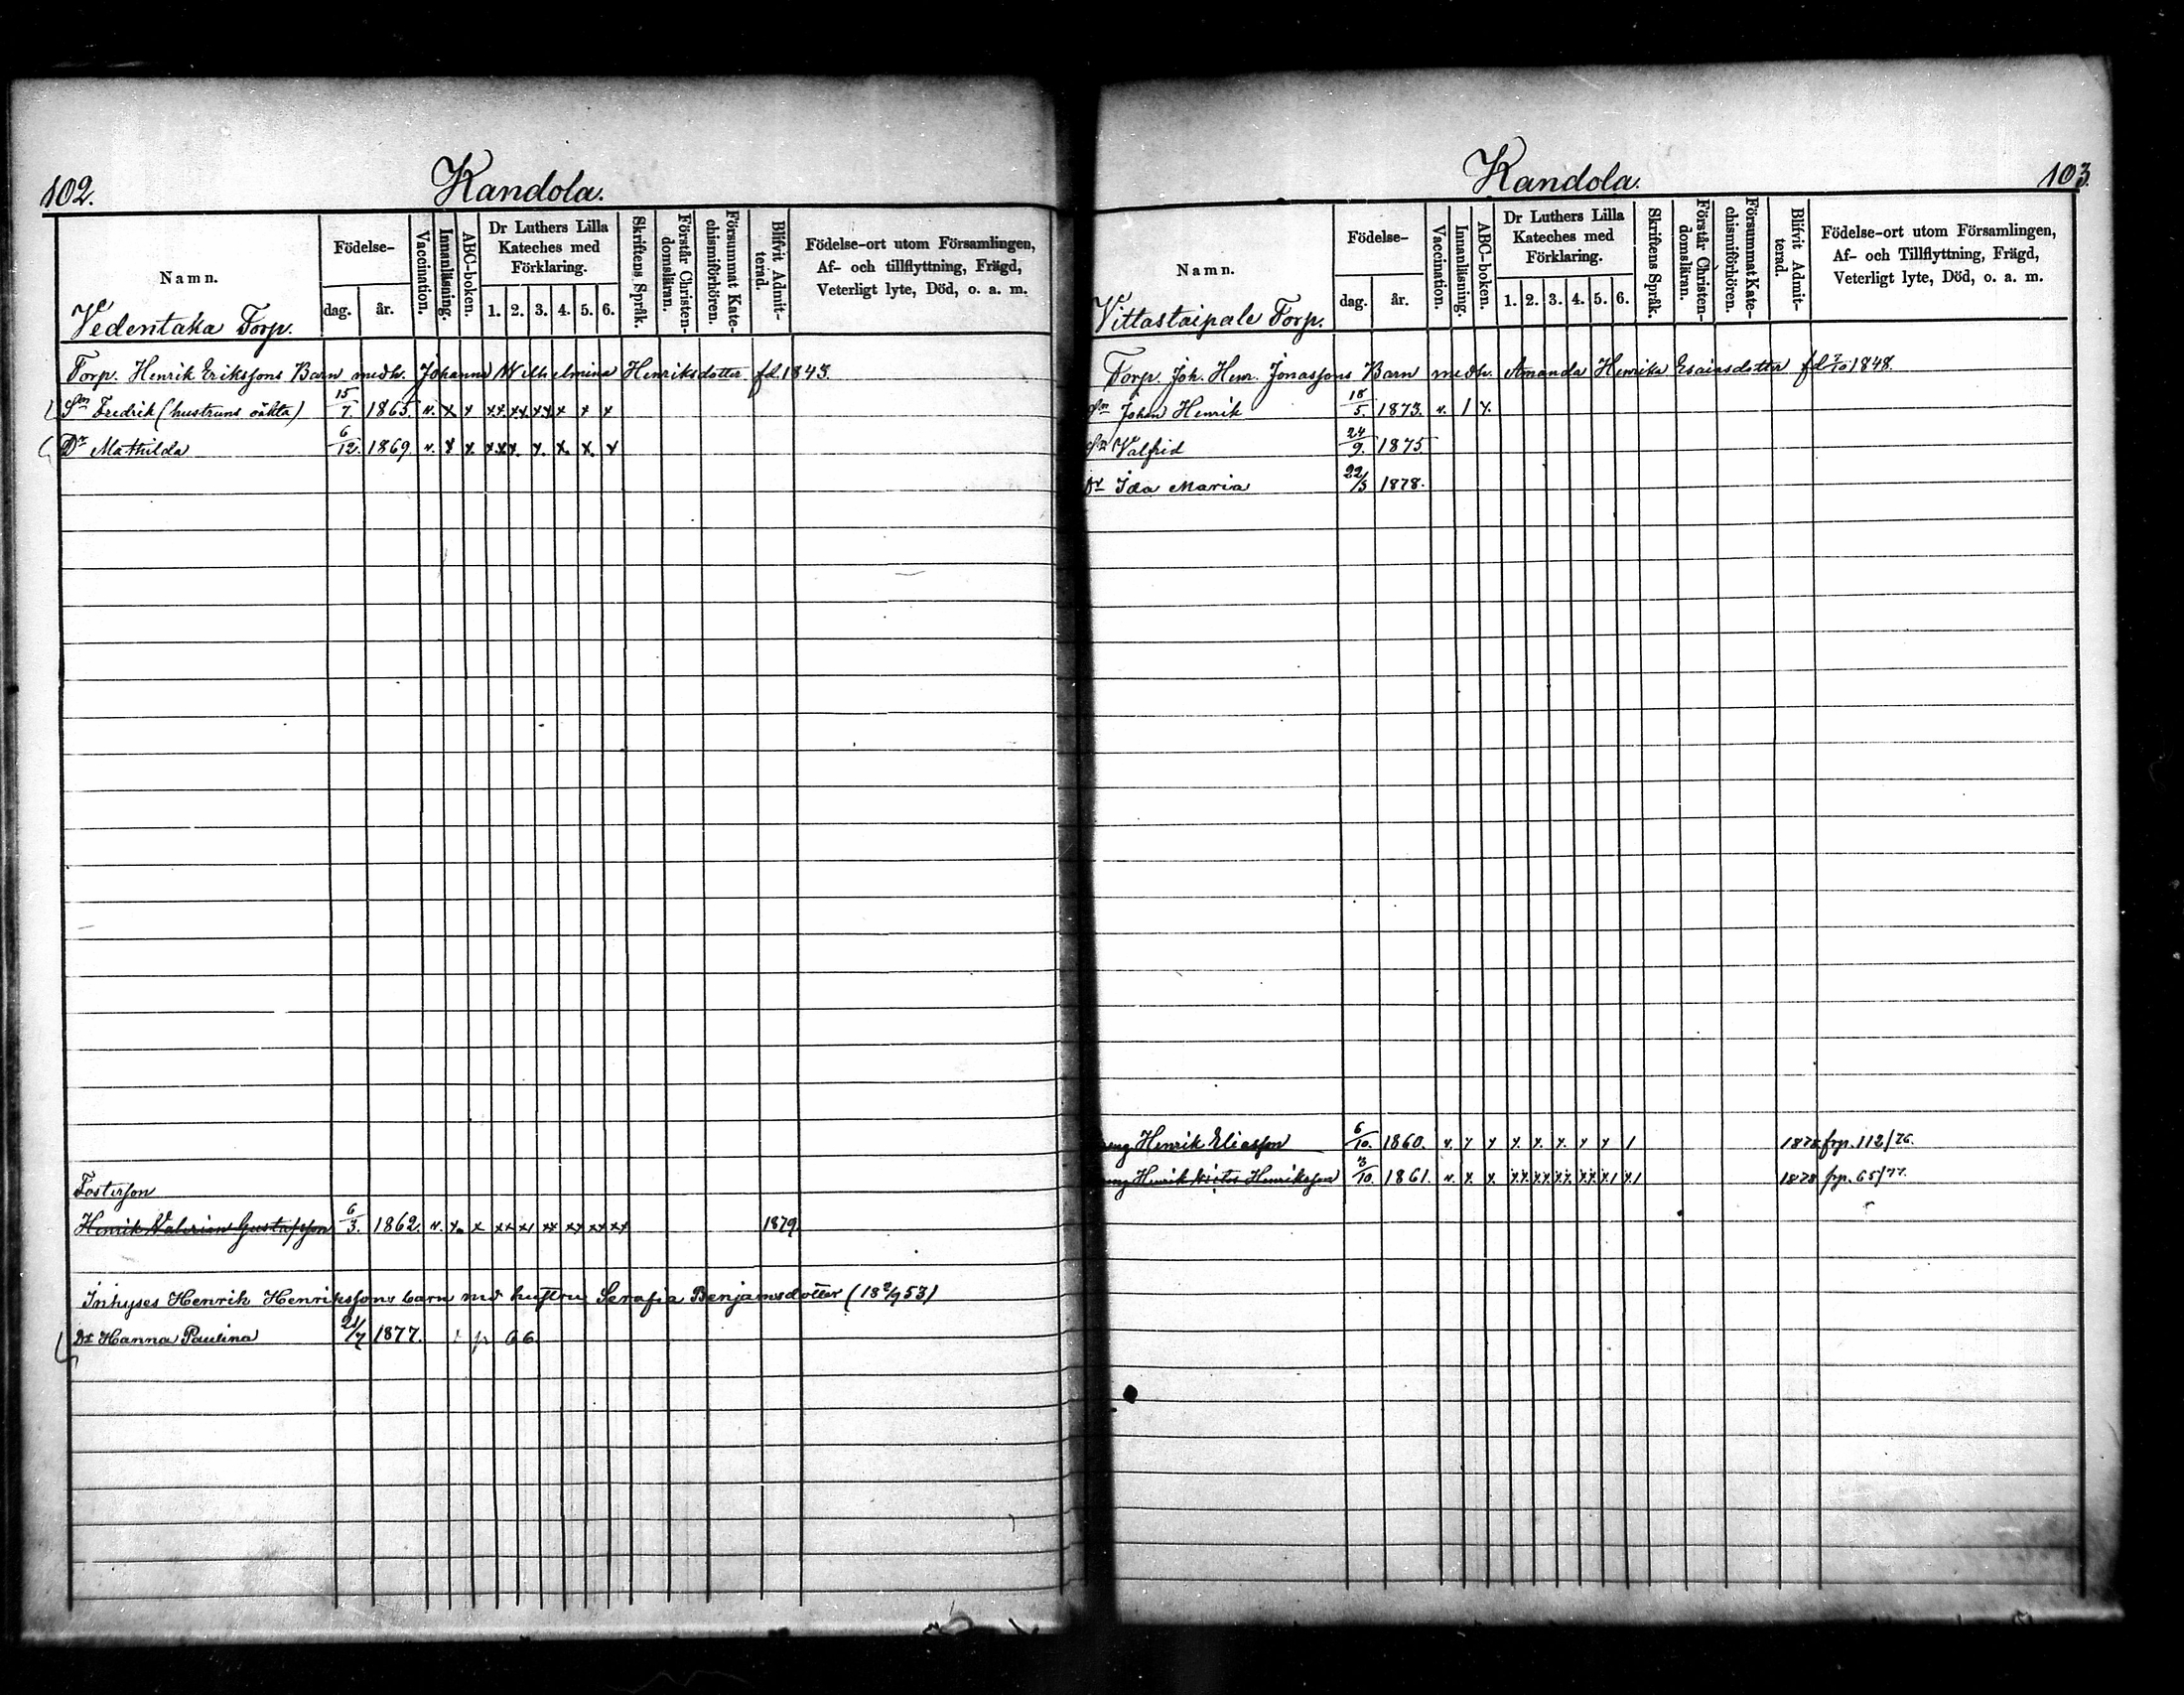 102.
Kandola.
Namn.
Födelse-
dag.
år.
Vaccination.
Innanläsning.
ABC-boken.
Dr Luthers Lilla
Kateches med
Förklaring.
1. 2. 3. 4. 5. 6.
Skriftens Språk.
Förstår Christen-
domsläran.
Försummat Kate-
chismiförhören.
Blifvit Admit-
terad.
Födelse-ort utom Församlingen,
Af- och tillflyttning, Frägd,
Veterligt lyte, Död, o. a. m.
Vedentaka Torp.
Torp. Henrik Erikssons Barn med h. Johanna Wilhelmina Henriksdotter fd. 1843.
Sn Fredrik (hustruns oäkta) 15/7. 1865. v. x x xx xx xx x x x
Dr Mathilda 6/12. 1869. v. x x. xxx. x. x. x. x
Fosterson
Henrik Valerian Gustafsson 6/3. 1862. v. x x xx xx xx xx xx xx 1879
Inhyses Henrik Henrikssons barn md hustru Serafia Benjamsdotter (18 2/9 53)
Dr Hanna Paulina 21/7 1877.
Kandola.
103.
Namn.
Födelse-
dag.
år.
Vaccination.
Innanläsning.
ABC-boken.
Dr Luthers Lilla
Kateches med
Förklaring.
1. 2. 3. 4. 5. 6.
Skriftens Språk.
Förstår Christen-
domsläran.
Försummat Kate-
chismiförhören.
Blifvit Admit-
terad.
Födelse-ort utom Församlingen,
Af- och Tillflyttning, Frägd,
Veterligt lyte, Död, o. a. m.
Vittastaipale Torp.
Torp. Joh. Henr. Jonassons Barn med h. Amanda Henrika Esaiasdotter fd 1848.
Sn Johan Henrik 18/5. 1873. v. 1 x.
Sn Valfrid 24/9. 1875
Dr Ida Maria 22/3 1878.
Henrik Eliasson 6/10. 1860. v. x x x. x. x. x x 1 1878 frp. 112/76.
Henrik Henriksson 3/10. 1861. v. x. x. 1878 frp. 65/77.